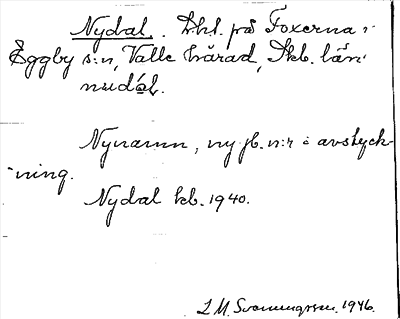 Nydal. Lht. på Foxerna i
Eggby s:n, Valle härad, Skb. län
nudál.
Nynamn, ny jb.n:r i avstyck-
ning.
Nydal kb. 1940.
L M. Svenungsson. 1946.